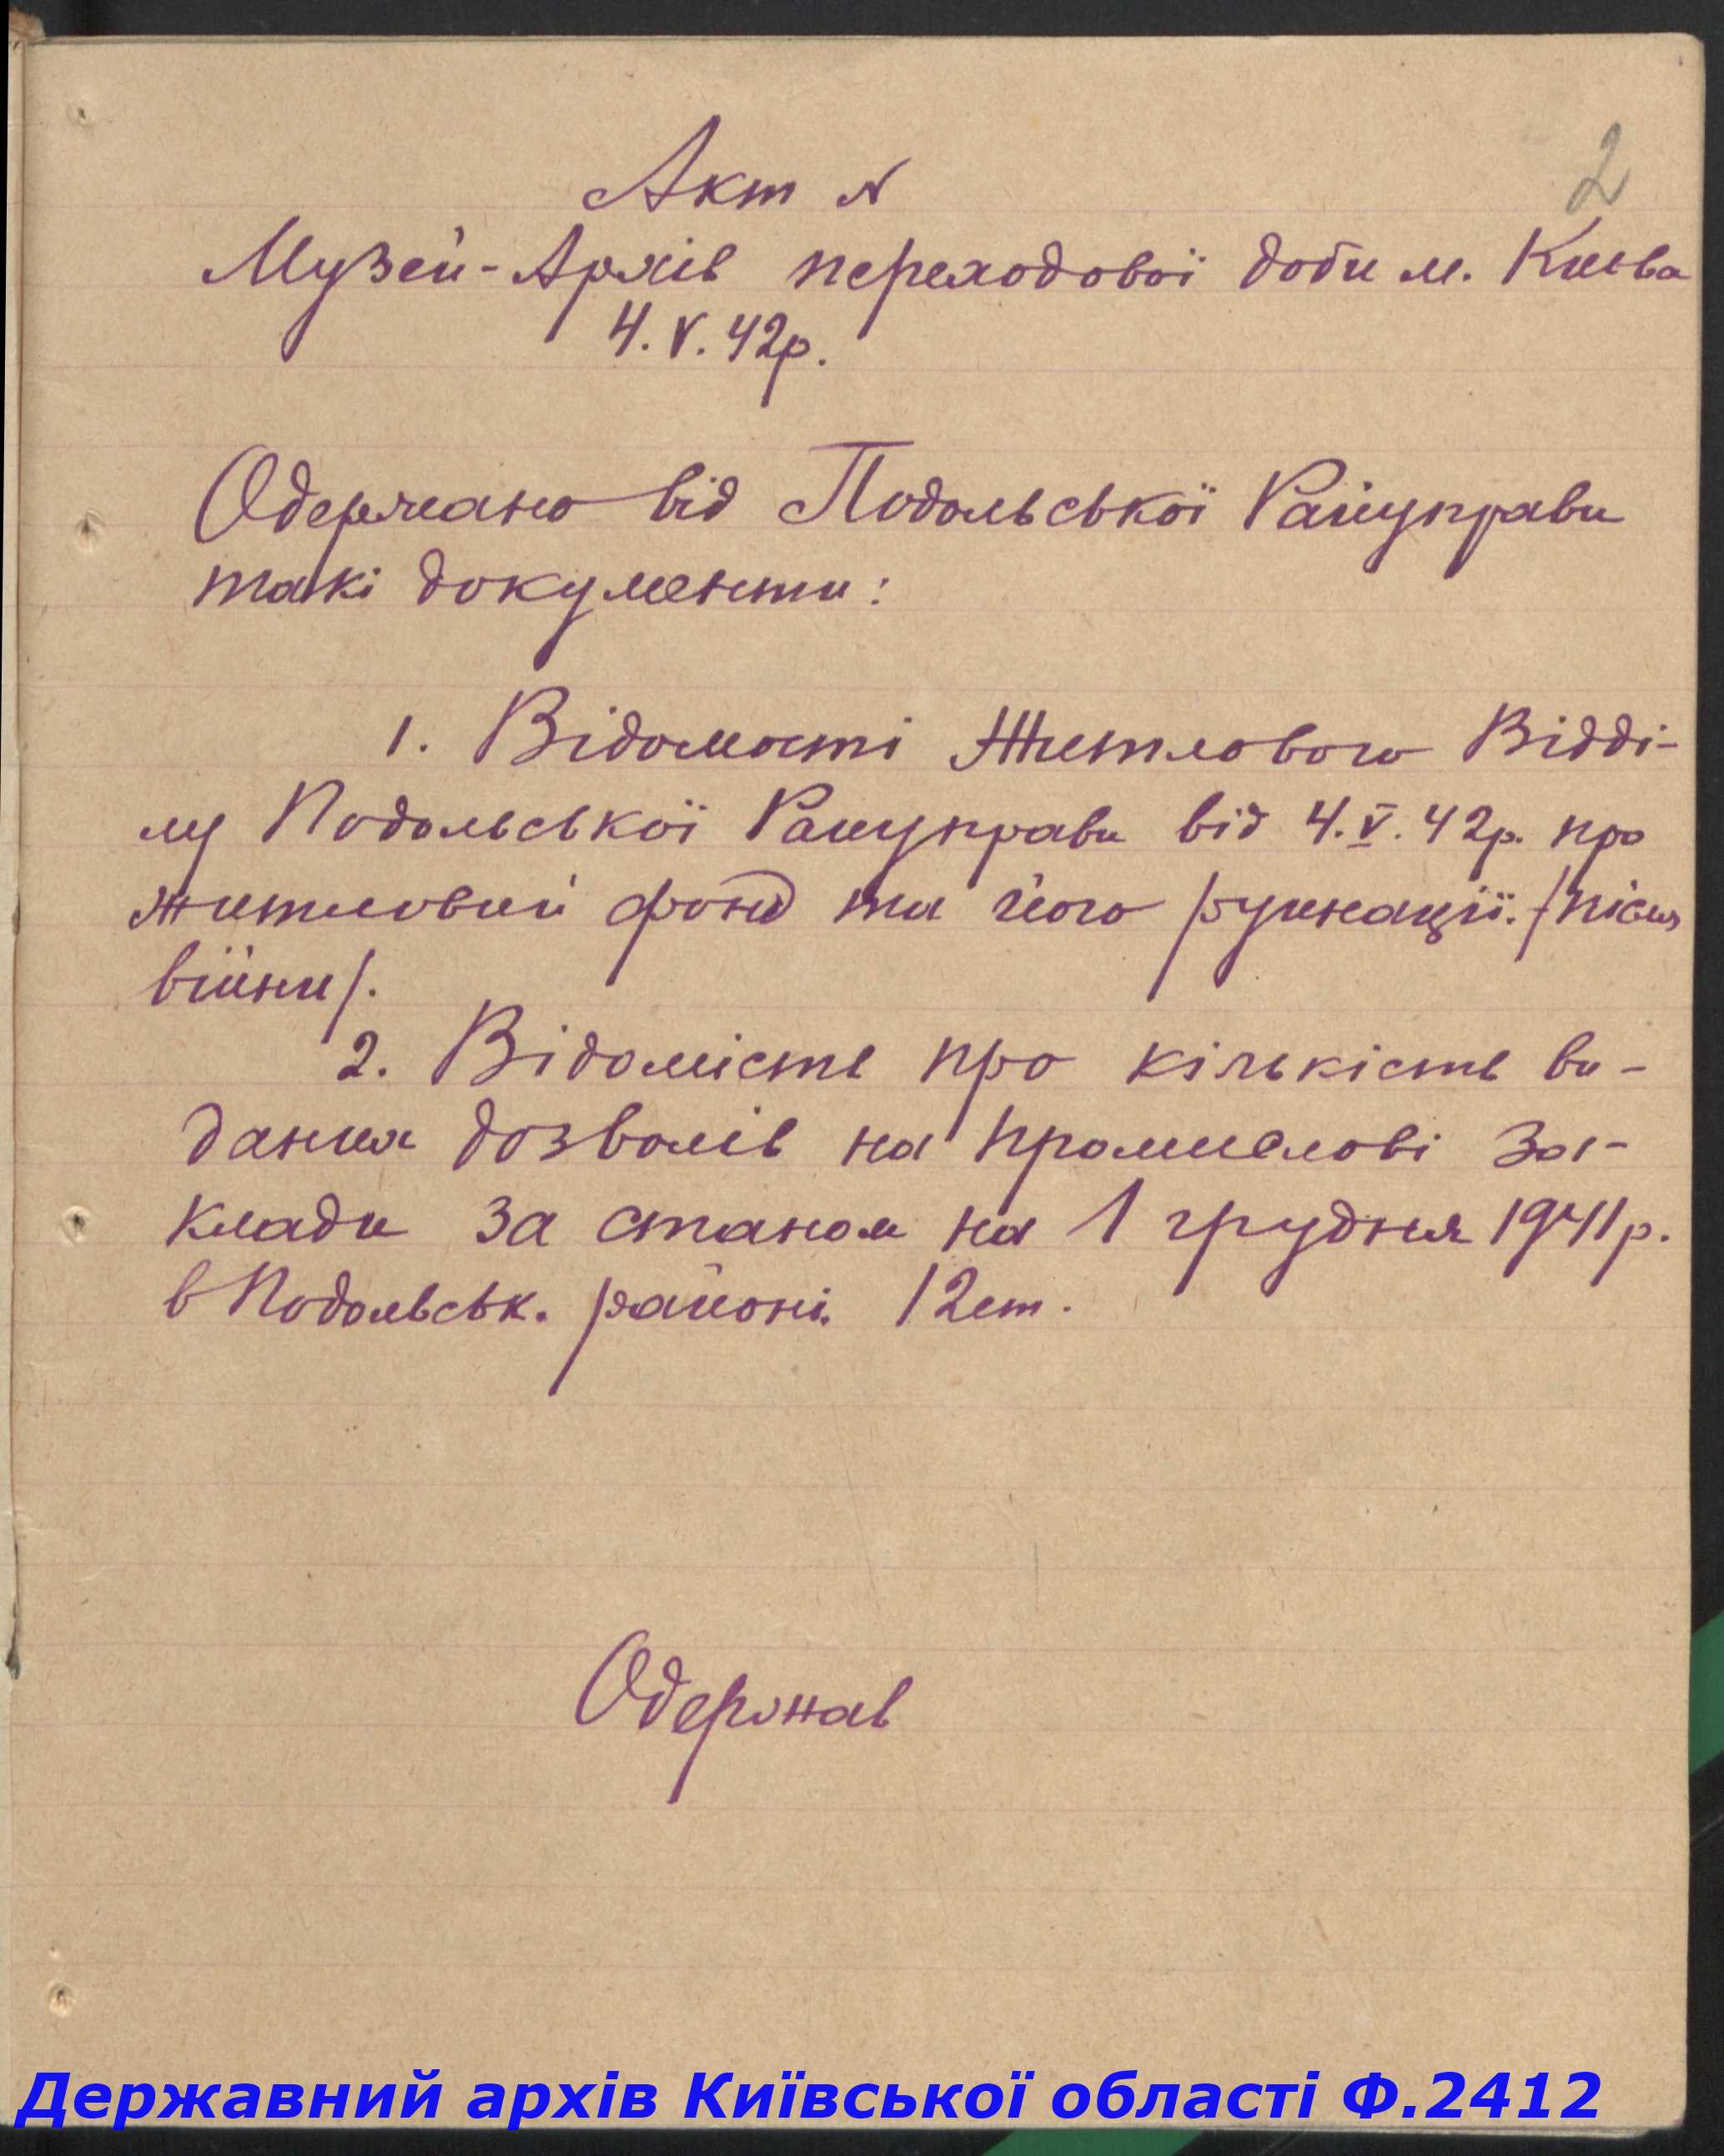 2
Акт №
Музей-Архів переходової доби м. Київа
4.V.42р.
Одержано від Подольської Райуправи
такі документи:
1. Відомості Житлового Відді-
лу Подольської Райуправи від 4.V.42р. про
житловий фонд та його руйнації. /після
війни/.
2. Відомість про кількість ви-
дання дозволів на промислові за-
клади за станом на 1 грудня 1941р.
в Подольськ. районі.
Одержав
Державний архів Київської області Ф.2412